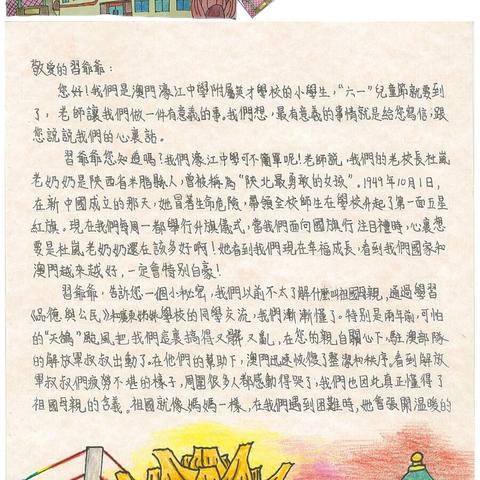 敬愛的習爺爺：
您好！我們是澳門濠江中學附屬英才學校的小學生，“六一”兒童節就要到
了，老師讓我們做一件有意義的事。我們想，最有意義的事情就是給您寫信，跟
您說說我們的心裏話。
習爺爺您知道嗎？我們濠江中學可不簡單呢！老師說，我們的老校長杜嵐
老奶奶是陝西省米脂縣人，曾被稱為“陝北最勇敢的女孩”。1949年10月1日，
在新中國成立的那天，她冒著生命危險，帶領全校師生在學校升起了第一面五星
紅旗。現在我們每周一都舉行升旗儀式，當我們面向國旗行注目禮時，心裏想
要是杜嵐老奶奶還在該多好啊！她看到我們現在幸福成長，看到我們國家和
澳門越來越好，一定會特別自豪！
習爺爺，告訴您一個小秘密，我們以前不太了解什麼叫祖國母親，通過學習
《品德與公民》和廣東姊妹學校的同學交流，我們漸漸懂了。特別是兩年前，可怕
的“天鴿”颱風把我們這裏搞得又髒又亂，在您的親自關心下，駐澳部隊
的解放軍叔叔出動了。在他們的幫助下，澳門迅速恢復了整潔和秩序。看到解放
軍叔叔們疲勞不堪的樣子，周圍很多人都感動得哭了，我們也因此真正懂得了
祖國母親的含義。祖國就像媽媽一樣，在我們遇到困難時，她會張開溫暖的